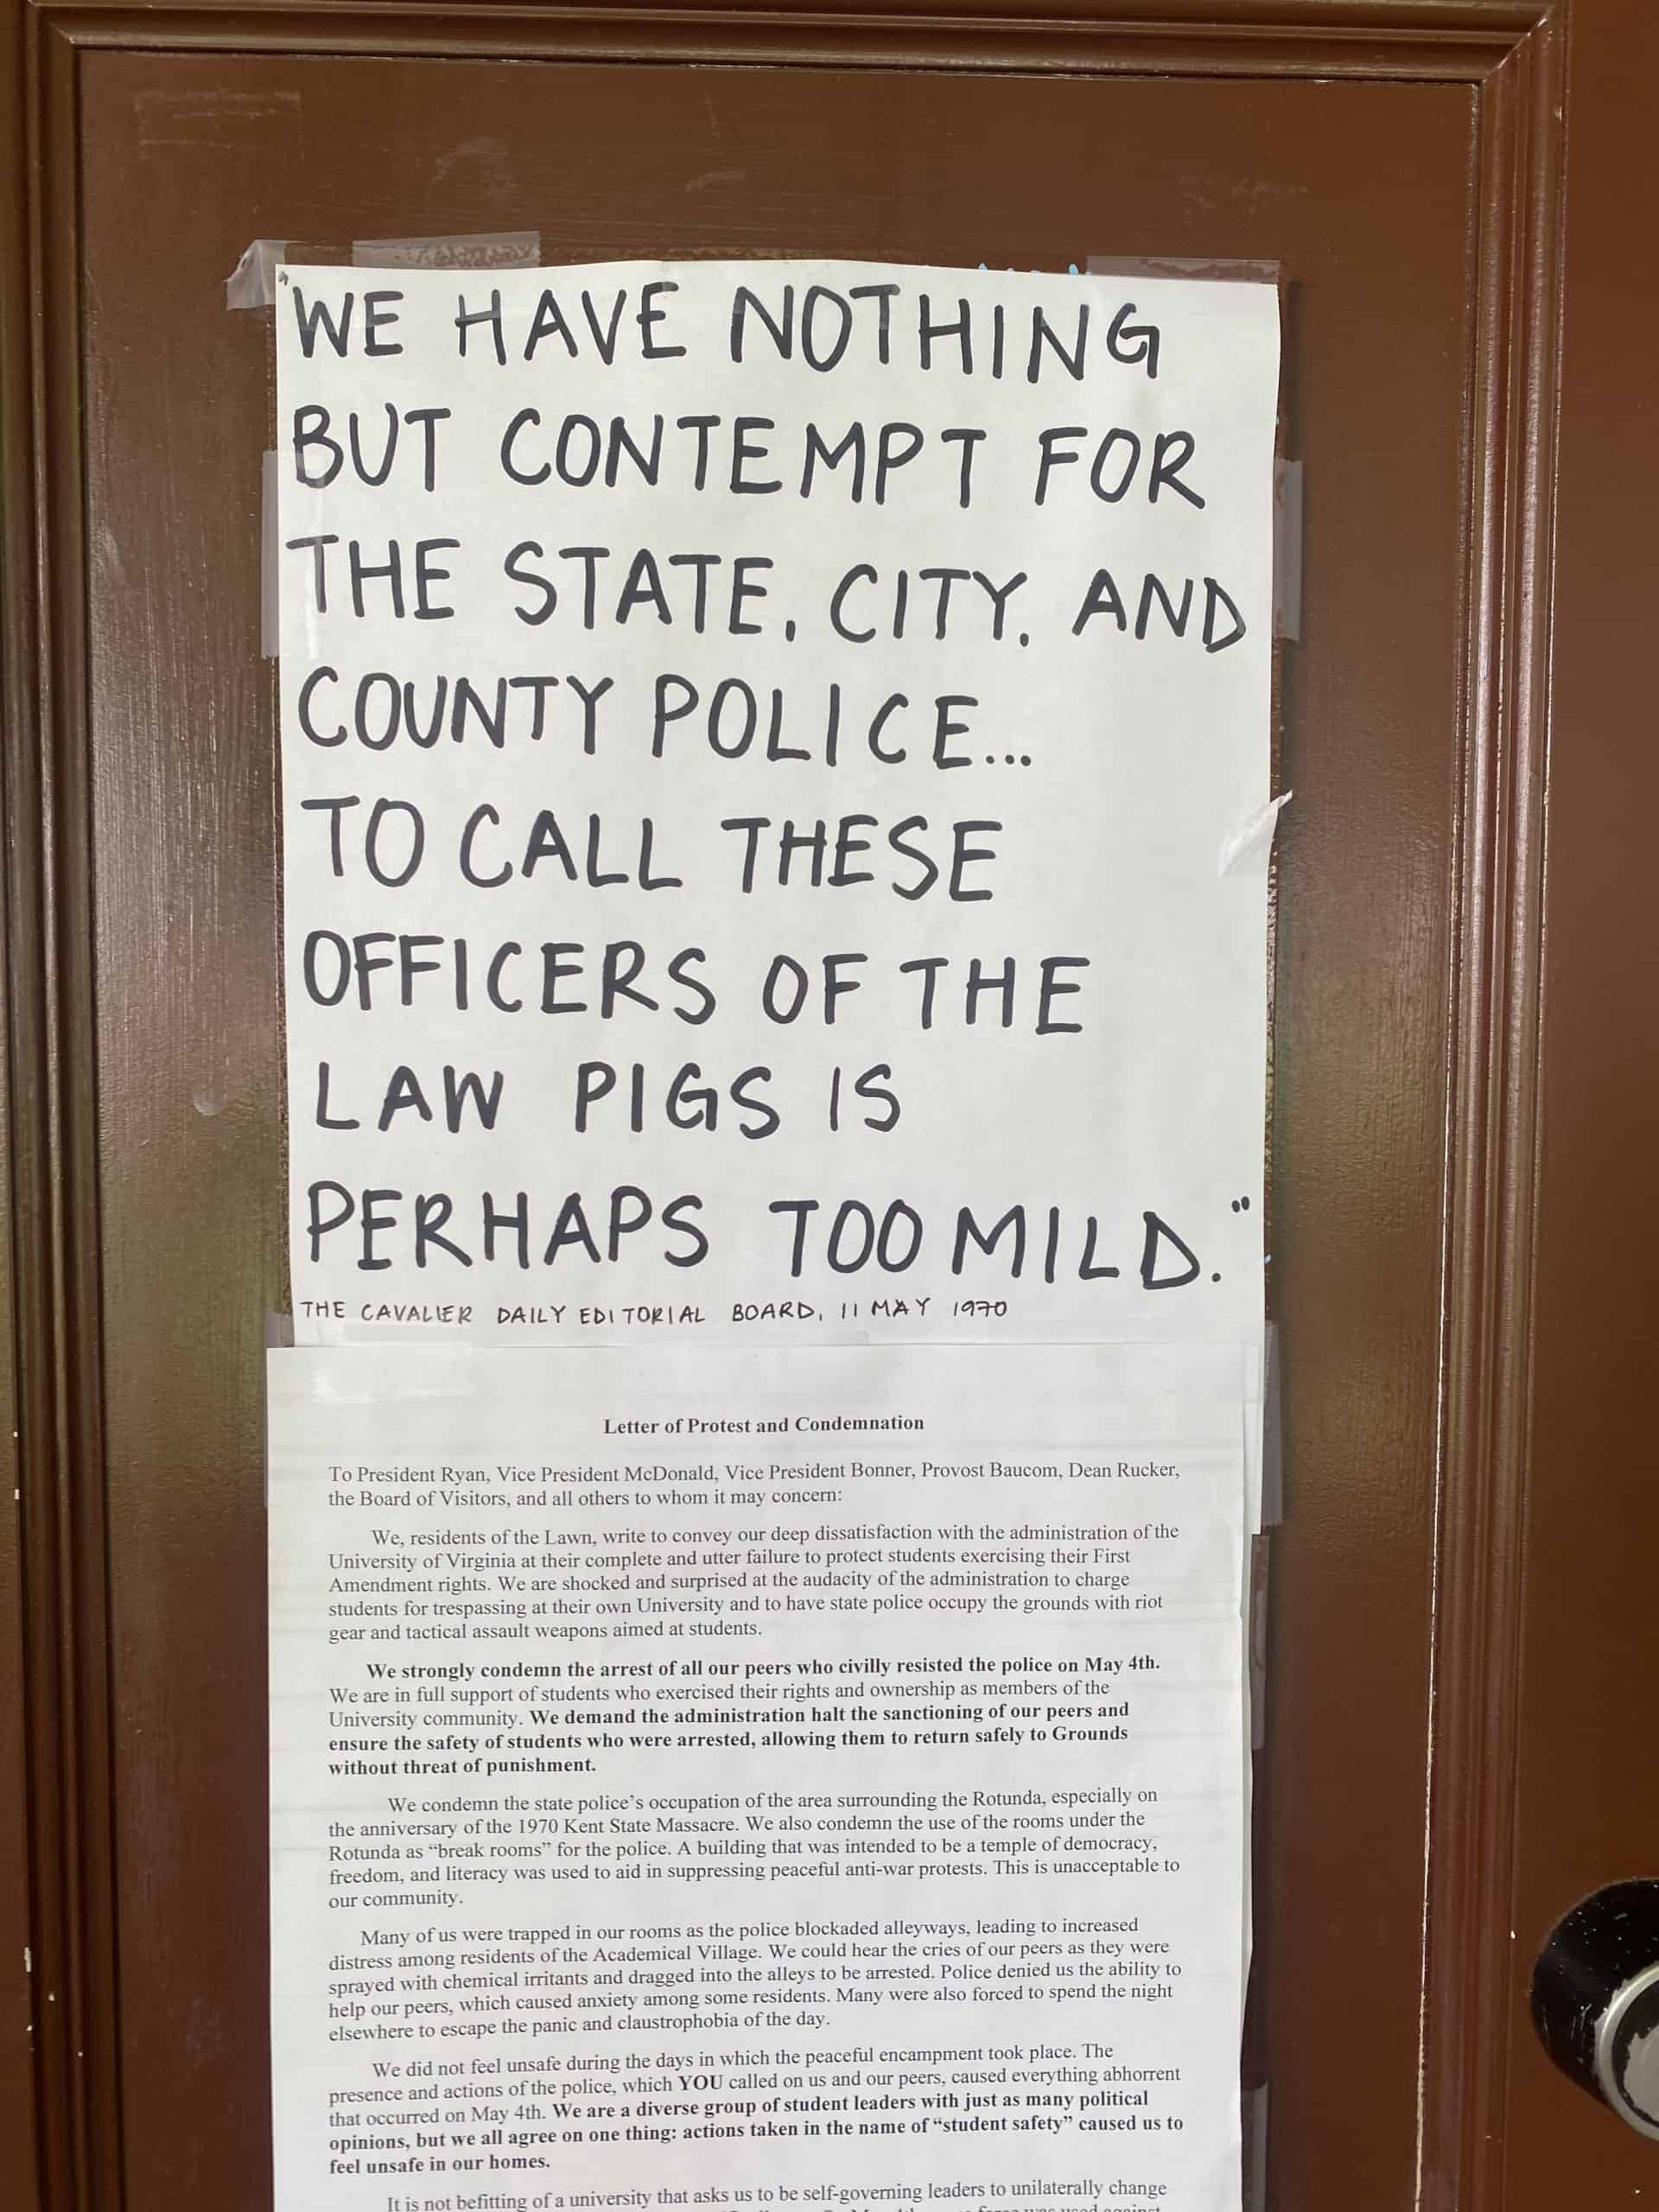 "WE HAVE NOTHING
BUT CONTEMPT FOR
THE STATE, CITY, AND
COUNTY POLICE...
TO CALL THESE
OFFICERS OF THE
LAW PIGS IS
PERHAPS TOO MILD."
THE CAVALIER DAILY EDITORIAL BOARD, 11 MAY 1970
Letter of Protest and Condemnation
To President Ryan, Vice President McDonald, Vice President Bonner, Provost Baucom, Dean Rucker,
the Board of Visitors, and all others to whom it may concern:
We, residents of the Lawn, write to convey our deep dissatisfaction with the administration of the
University of Virginia at their complete and utter failure to protect students exercising their First
Amendment rights. We are shocked and surprised at the audacity of the administration to charge
students for trespassing at their own University and to have state police occupy the grounds with riot
gear and tactical assault weapons aimed at students.
We strongly condemn the arrest of all our peers who civilly resisted the police on May 4th.
We are in full support of students who exercised their rights and ownership as members of the
University community. We demand the administration halt the sanctioning of our peers and
ensure the safety of students who were arrested, allowing them to return safely to Grounds
without threat of punishment.
We condemn the state police's occupation of the area surrounding the Rotunda, especially on
the anniversary of the 1970 Kent State Massacre. We also condemn the use of the rooms under the
Rotunda as “break rooms” for the police. A building that was intended to be a temple of democracy,
freedom, and literacy was used to aid in suppressing peaceful anti-war protests. This is unacceptable to
our community.
Many of us were trapped in our rooms as the police blockaded alleyways, leading to increased
distress among residents of the Academical Village. We could hear the cries of our peers as they were
sprayed with chemical irritants and dragged into the alleys to be arrested. Police denied us the ability to
help our peers, which caused anxiety among some residents. Many were also forced to spend the night
elsewhere to escape the panic and claustrophobia of the day.
We did not feel unsafe during the days in which the peaceful encampment took place. The
presence and actions of the police, which YOU called on us and our peers, caused everything abhorrent
that occurred on May 4th. We are a diverse group of student leaders with just as many political
opinions, but we all agree on one thing: actions taken in the name of “student safety” caused us to
feel unsafe in our homes.
It is not befitting of a university that asks us to be self-governing leaders to unilaterally change